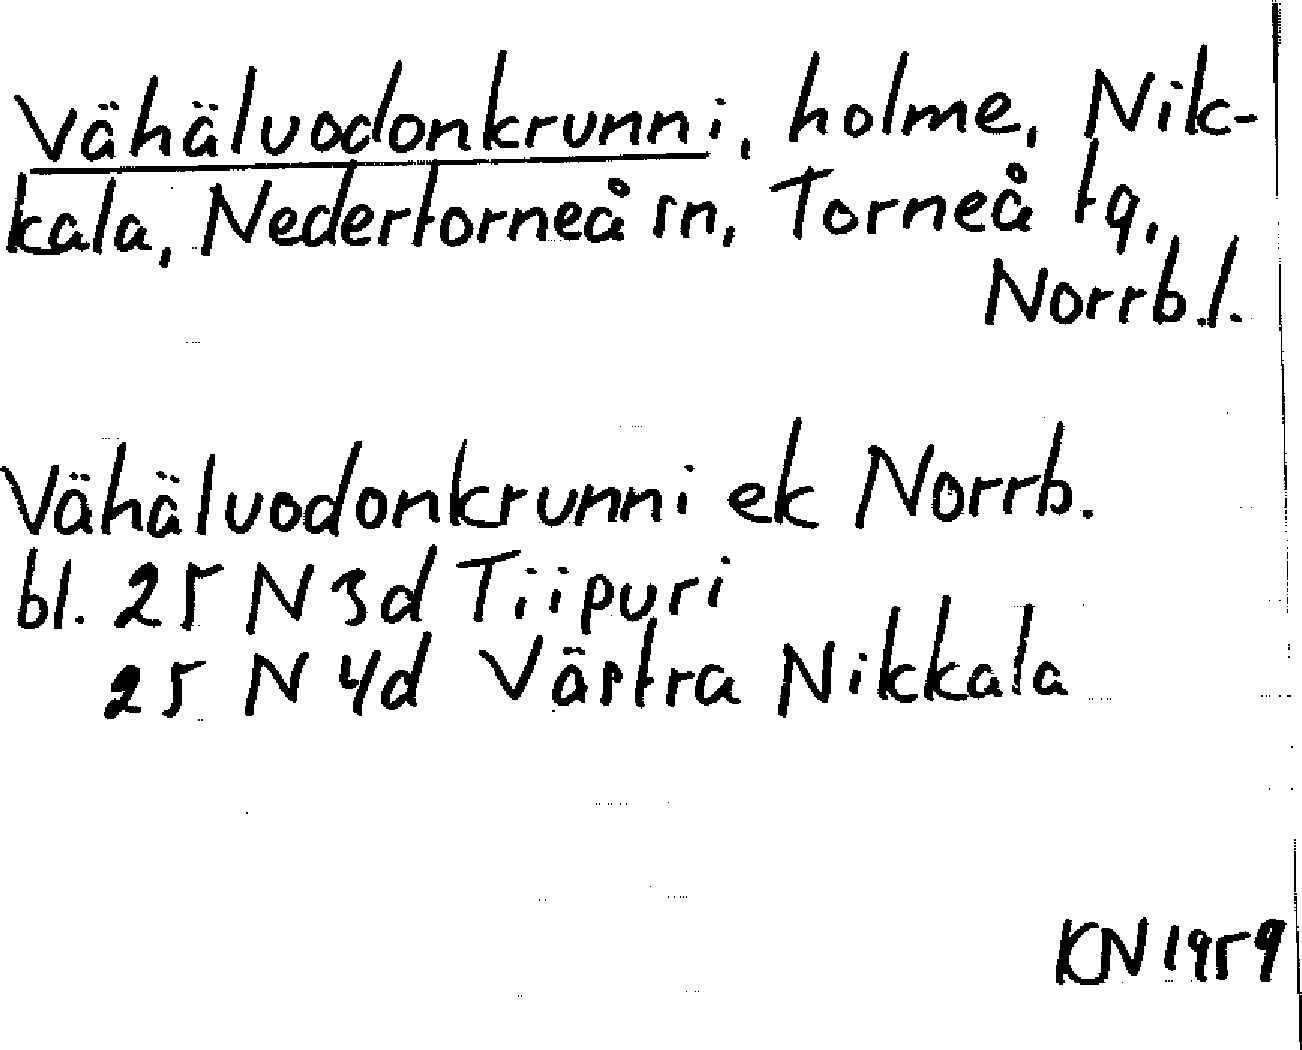 Vähäluodonkrunni, holme, Nik-
kala, Nedertorneå sn, Torneå tg,
Norrb.l.
Vähäluodonkrunni ek Norrb.
bl. 25 N 3d Tiipuri
25 N 4d Västra Nikkala
KN 1959